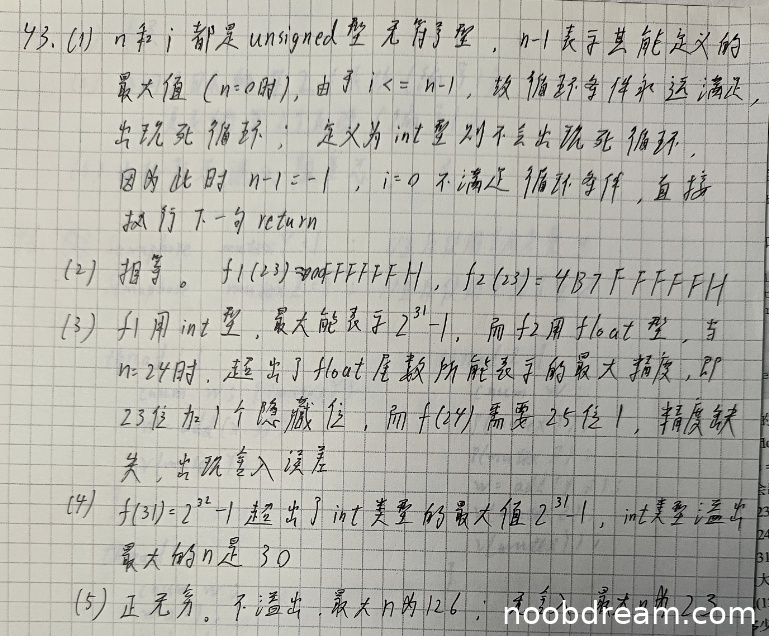 43. (1) n和i都是unsigned型无符号型，n-1表示其能定义的
最大值(n=0时)，由于i<=n-1，故循环条件永远满足，
出现死循环；定义为int型则不会出现死循环，
因为此时n-1=-1，i=0不满足循环条件，直接
执行下一句return
(2) 相等。f1(23)=00FFFFFFH，f2(23)=4B7FFFFFH
(3) f1用int型，最大能表示2^31-1，而f2用float型，当
n=24时，超出了float尾数所能表示的最大精度，即
23位加1个隐藏位，而f(24)需要25位1，精度缺
失，出现舍入误差
(4) f(31)=2^32-1超出了int类型的最大值2^31-1，int类型溢出
最大的n是30
(5) 正无穷。不溢出，最大n为126；无舍入，最大n为23
noobdream.com